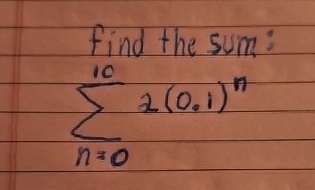 find the sum:
10
∑ 2(0.1)ⁿ
n=0